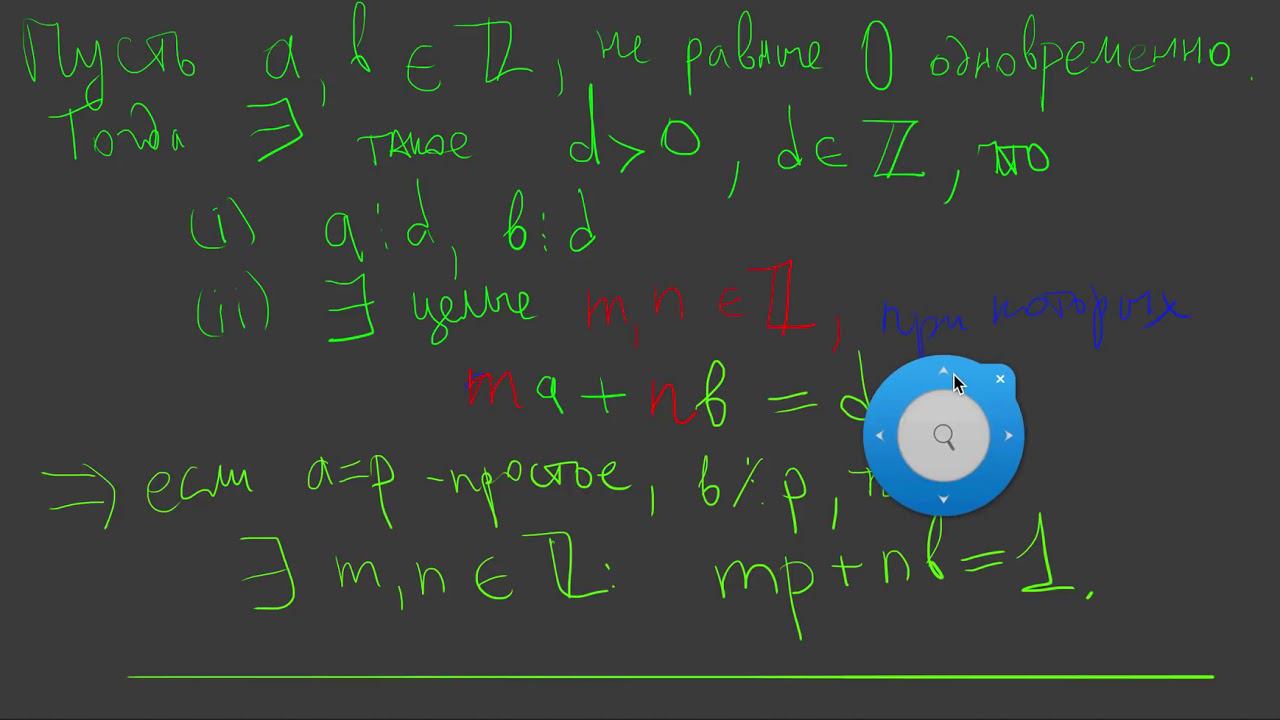 Пусть a, b ∈ ℤ, не равные 0 одновременно.
Тогда ∃ такое d > 0, d ∈ ℤ, что
(i) a ⋮ d, b ⋮ d
(ii) ∃ целые m, n ∈ ℤ, при которых
ma + nb = d
⇒ если a = p - простое, b ⋮̸ p,
∃ m, n ∈ ℤ: mp + nb = 1.